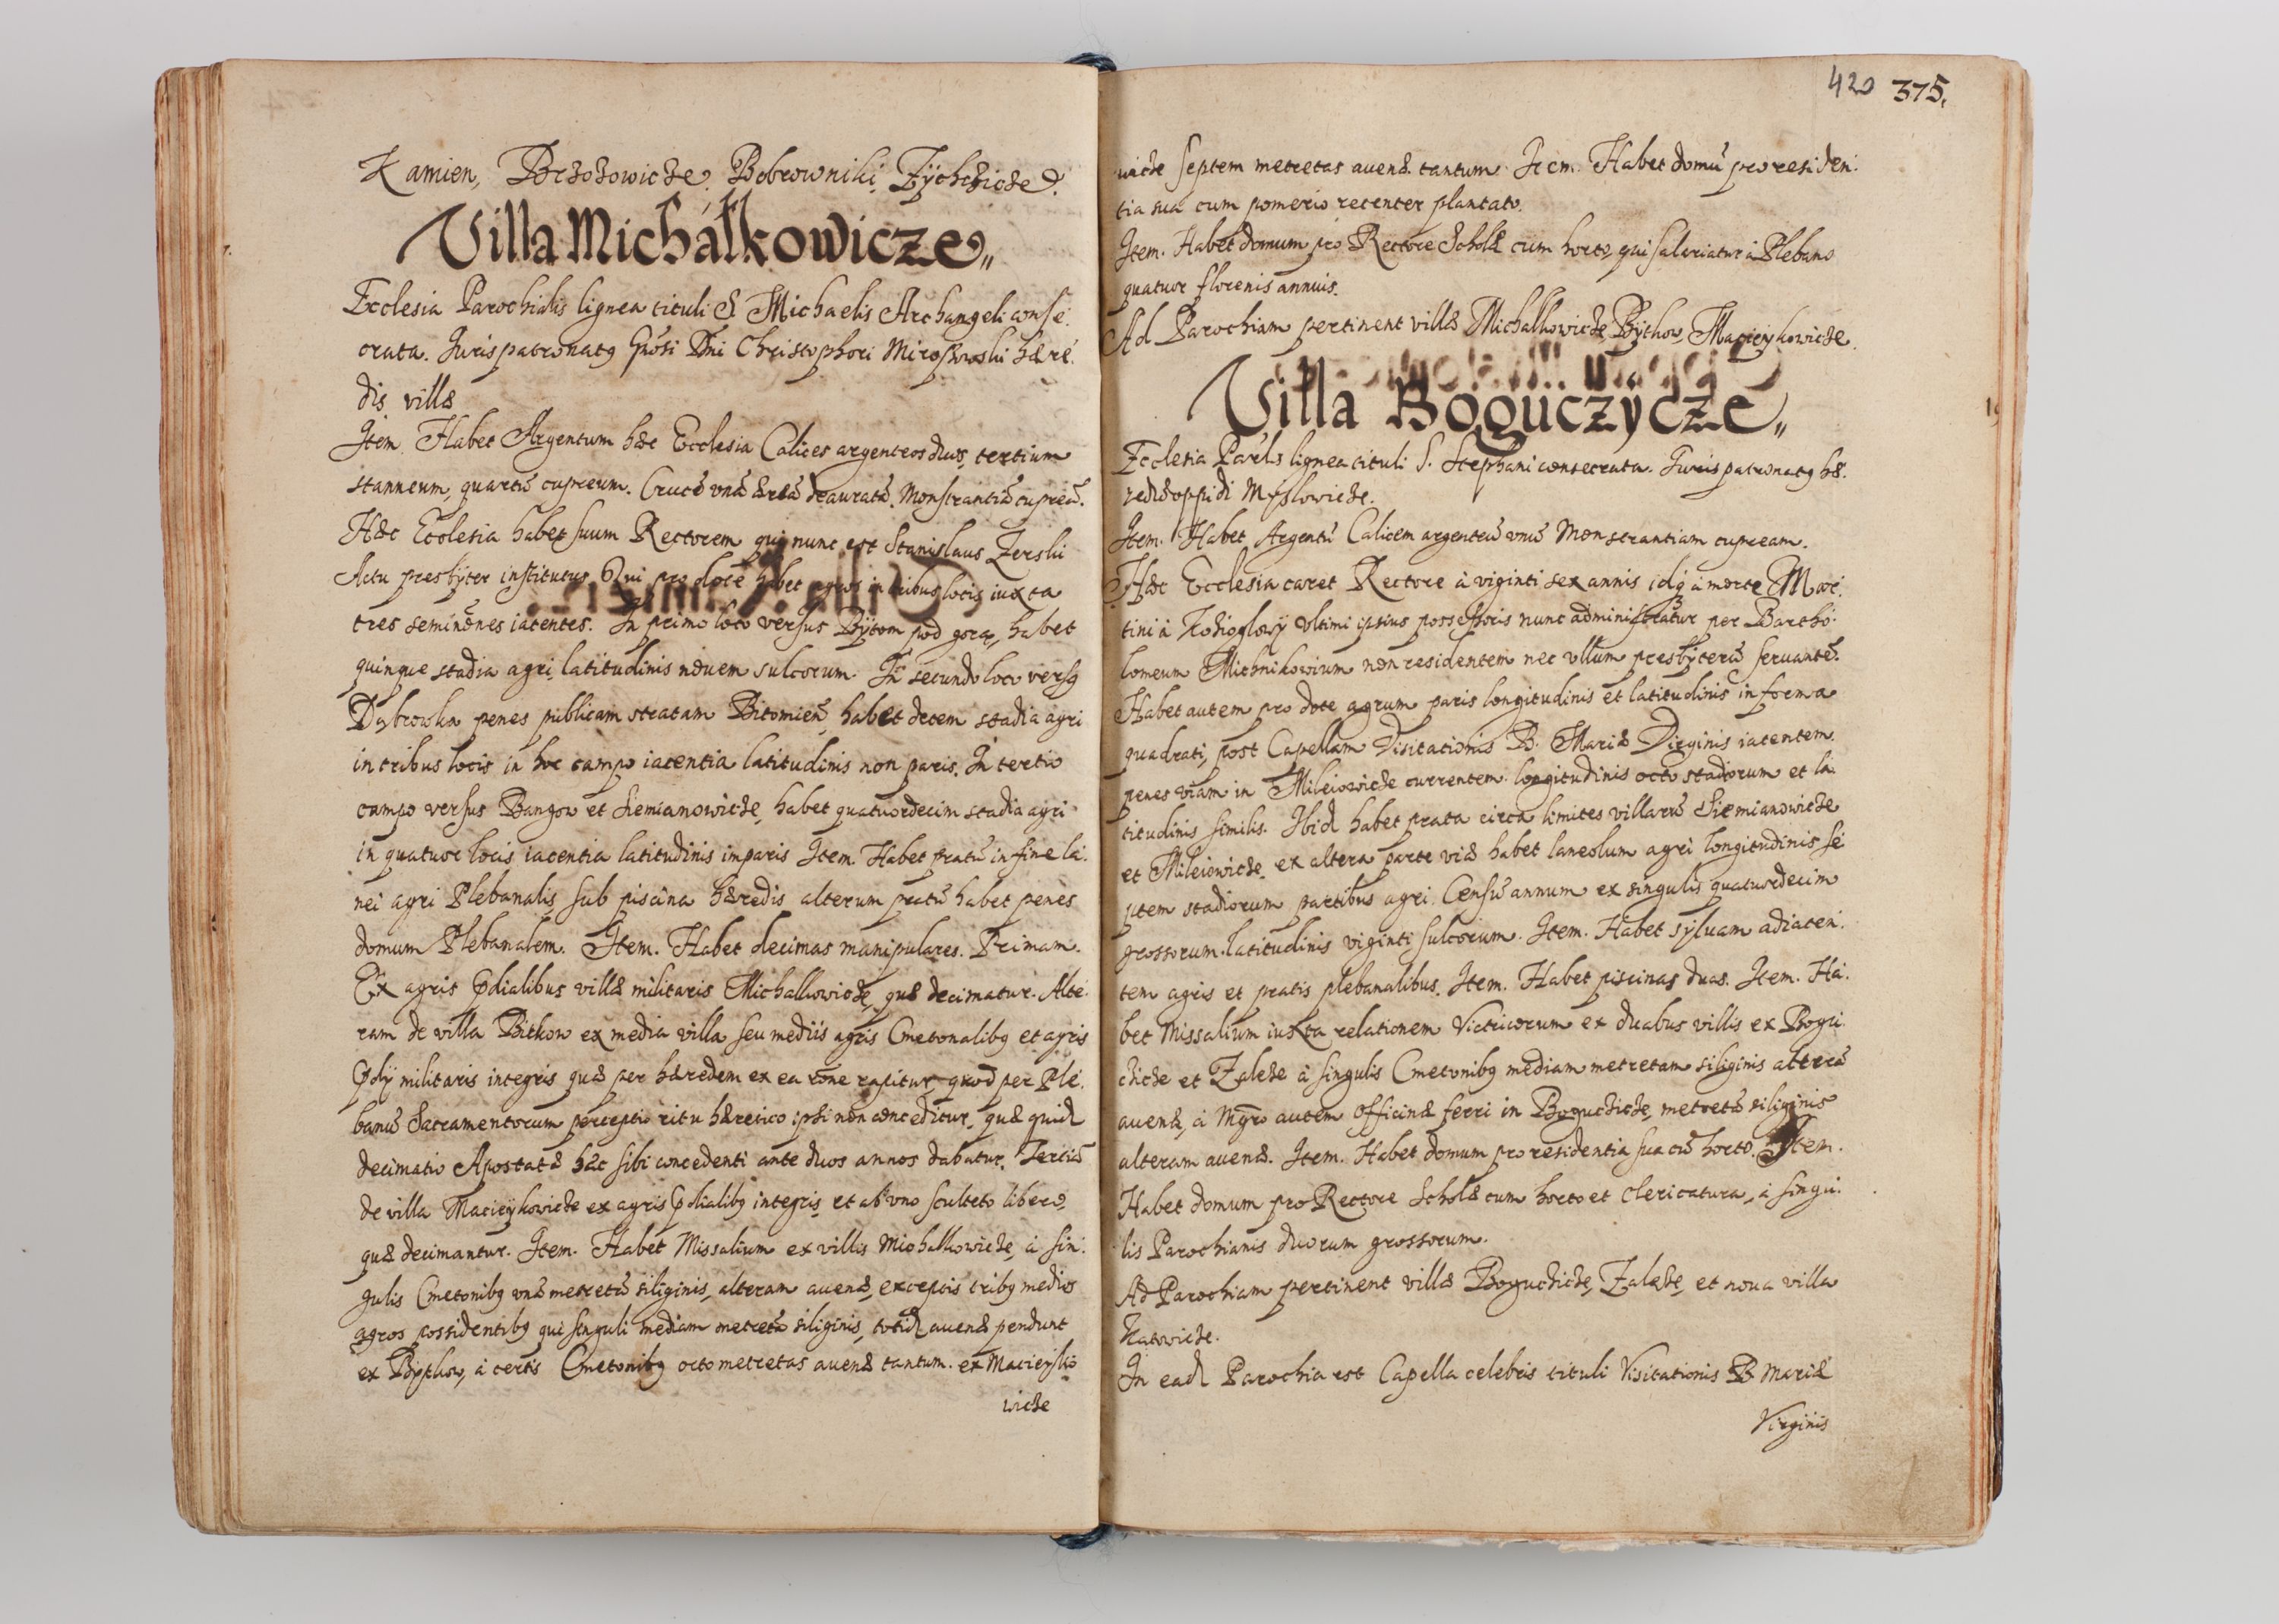 Kamien, Brzozowicze, Bobrowniki, Zychczice.
Villa Michałkowicze
Ecclesia Parochialis lignea tituli S. Michaelis Archangeli conse.
crata. Juris patronatq Gnosi Dni Christophori Miroszewski hære.
dis villæ
Item. Habet Argentum hæc Ecclesia Calices argenteos duos, tertium
stanneum, quartū cupreum. Crucē vnā æreā deauratā. Monstrantiā cupreā.
Hæc Ecclesia habet suum Rectorem qui nunc est Stanislaus Zerski
Actu presbyter institutus. Qui pro dote habet agros in tribus locis iuxta
tres seminōnes iacentes. In primo loco versus Bytom pod gorą, habet
quinque stadia agri, latitudinis nouem sulcorum. In secundo loco versq
Dąbrowka penes publicam stratam Bitomień, habet decem stadia agri
in tribus locis in hoc campo iacentia latitudinis non paris. In tertio
campo versus Bangow et Siemianowicze, habet quatuordecim stadia agri
in quatuor locis iacentia latitudinis imparis Item. Habet pratū in fine la.
nei agri Plebanalis sub piscina hæredis alterum pratū habet penes
domum Plebanalem. Item. Habet decimas manipulares. Primam.
Ex agris Pdialibus villæ militaris Michalkowicze, quæ decimatur. Alte.
ram de villa Bitkow ex media villa seu mediis agris Cmetonalibq et agris
Pdij militaris integris quæ per hæredem ex ea rōne rapitur quod per Ple.
banū Sacramentorum perceptio ritu hæretico ipsi non conceditur, quæ quid
decimatio Apostatæ hæc sibi concedenti ante duos annos dabatur. Tertiā
de villa Macieykowicze ex agris Pdialibq integris, et ab vno sculteto libero,
quæ decimantur. Item. Habet Missalium ex villis Michalkowicze, à sin.
gulis Cmetonibq vnā metretā siliginis, alteram auenæ, exceptis tribq medios
agros possidentibq qui singuli mediam metretā siliginis, totid auenæ pendunt
ex Bytkow, à certis Cmetonibq octo metretas auenæ tantum. ex Macieyko
wicze
420 375.
wicze septem metretas auenæ tantum. Item. Habet domū pro residen.
tia sua cum pomerio recenter plantato.
Item. Habet domum pro Rectore Scholæ cum horto, qui salariatur à Plebano
quatuor florenis annuis.
Ad Parochiam pertinent villæ Michalkowicze, Bytkow, Macieykowicze.
Villa Boguczycze
Ecclesia Parlis lignea tituli S. Stephani consecrata. Juris patronatq hæ.
redis oppidi Myslowicze.
Item. Habet Argentū Calicem argenteū vnū Monstrantiam cupream.
Hæc Ecclesia caret Rectore à viginti sex annis idq à morte Mar.
tini à Kozioglowy vltimi ipsius possessoris nunc administratur per Bartho.
lomeum Michnikowium non residentem nec vllum presbyterū seruantē.
Habet autem pro dote agrum paris longitudinis et latitudinis in forma
quadrati, post Capellam Visitationis B. Mariæ Virginis iacentem.
penes viam in Mileiowicze currentem longitudinis octo stadiorum et la.
titudinis similis. Ibid habet prata circa limites villarū Siemianowicze
et Mileiowicze. ex altera parte viæ habet laneolum agri longitudinis se
ptem stadiorum partibus agri. Censū annum ex singulis quatuordecim
grossorum. latitudinis viginti sulcorum. Item. Habet syluam adiacen.
tem agris et pratis plebanalibus. Item. Habet piscinas duas. Item. Ha.
bet Missalium iuxta relationem Victricorum ex duabus villis ex Bogu.
czicze et Załęze à singulis Cmetonibq mediam metretam siliginis alterā
auenæ, à Mgro autem officinæ ferri in Boguczicze, metretā siliginis
alteram auenæ. Item. Habet domum pro residentia sua cū horto. Item.
Habet domum pro Rectore Scholæ cum horto et clericatura, à singu.
lis Parochianis duorum grossorum.
Ad Parochiam pertinent villæ Boguczicze, Załęze, et noua villa
Katowicze.
In ead Parochia est Capella celebris tituli Visitationis B Mariæ
Virginis